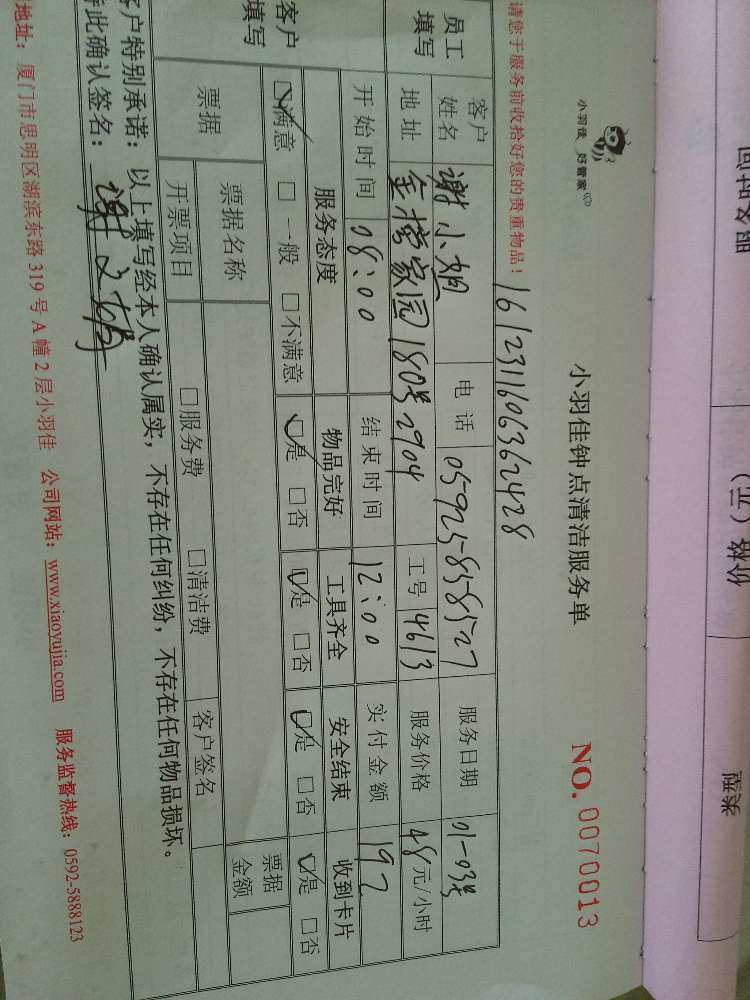 小羽佳 好管家
小羽佳钟点清洁服务单
NO. 0070013
请您于服务前收拾好您的贵重物品！
161231160636 2428
员工填写
客户姓名 谢小姐 电话 05925858527 服务日期 01-03号
地址 金搭家园180号2904 工号 4613 服务价格 48元/小时
开始时间 08:00 结束时间 12:00 实付金额 192
客户填写
服务态度 物品完好 工具齐全 安全结束 收到卡片
☑满意 □一般 □不满意 ☑是 □否 ☑是 □否 ☑是 □否 ☑是 □否
票据 票据名称 票据金额
开票项目 □服务费 □清洁费 客户签名
客户特别承诺：以上填写经本人确认属实，不存在任何纠纷，不存在任何物品损坏。
特此确认签名：谢
地址：厦门市思明区湖滨东路319号A幢2层小羽佳 公司网站：www.xiaoyujia.com 服务监督热线：0592-5888123
价格（元）